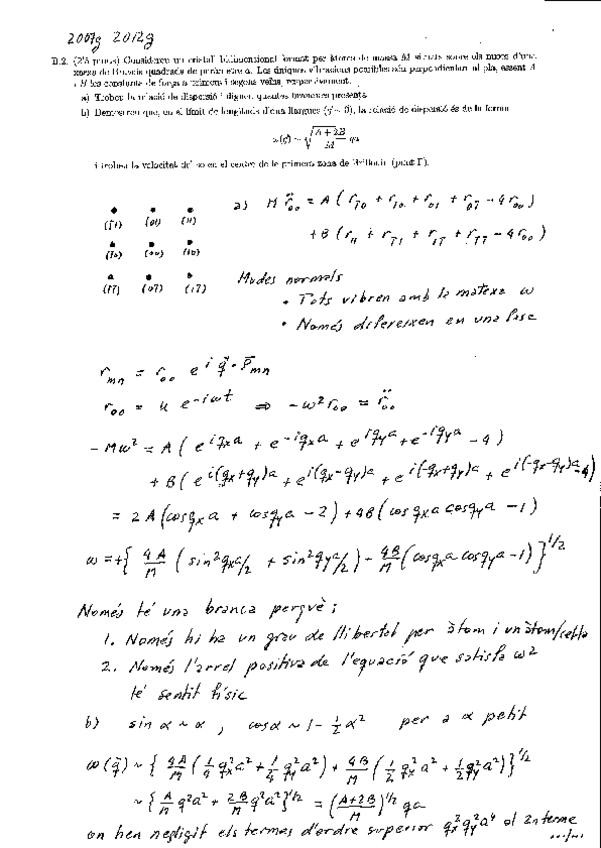 2007g 2012g
D.2. (2'5 punts) Considereu un cristall bidimensional format per àtoms de massa M situats sobre els nusos d'una
xarxa de Bravais quadrada de paràmetre a. Les úniques vibracions possibles són perpendiculars al pla, essent A
i B les constants de força a primers i segons veïns, respectivament.
a) Trobeu la relació de dispersió i digueu quantes branques presenta.
b) Demostreu que, en el límit de longituds d'ona llargues (q → 0), la relació de dispersió és de la forma
ω(q⃗) ~ √((A + 2B)/M) qa
i trobeu la velocitat del so en el centre de la primera zona de Brillouin (punt Γ).
(1̄1) (01) (11)
(1̄0) (00) (10)
(1̄1̄) (01̄) (11̄)
a) M r̈₀₀ = A ( r₁̄₀ + r₁₀ + r₀₁ + r₀₁̄ - 4 r₀₀ )
+ B ( r₁₁ + r₁̄₁ + r₁₁̄ + r₁̄₁̄ - 4 r₀₀ )
Modes normals
• Tots vibren amb la mateixa ω
• Només difereixen en una fase
rₘₙ = r₀₀ e^{i q⃗·ρ⃗ₘₙ}
r₀₀ = u e^{-iωt} ⇒ -ω² r₀₀ = r̈₀₀
- Mω² = A ( e^{i qₓa} + e^{-i qₓa} + e^{i q_y a} + e^{-i q_y a} - 4 )
+ B ( e^{i(qₓ+q_y)a} + e^{i(qₓ-q_y)a} + e^{i(-qₓ+q_y)a} + e^{i(-qₓ-q_y)a} - 4 )
= 2A (cos qₓa + cos q_y a - 2) + 4B (cos qₓa cos q_y a - 1)
ω = + { 4A/M ( sin² qₓa/2 + sin² q_y a/2 ) - 4B/M ( cos qₓa cos q_y a - 1 ) }^{1/2}
Només té una branca perquè:
1. Només hi ha un grau de llibertat per àtom i un àtom/cel·la
2. Només l'arrel positiva de l'equació que satisfà ω²
té sentit físic
b) sin α ~ α , cos α ~ 1 - ½ α² per a α petit
ω(q⃗) ~ { 4A/M ( ¼ qₓ²a² + ¼ q_y²a² ) + 4B/M ( ½ qₓ²a² + ½ q_y²a² ) }^{1/2}
~ { A/M q²a² + 2B/M q²a² }^{1/2} = ( (A+2B)/M )^{1/2} qa
on hem negligit els termes d'ordre superior qₓ²q_y²a⁴ al 2n terme
.../...